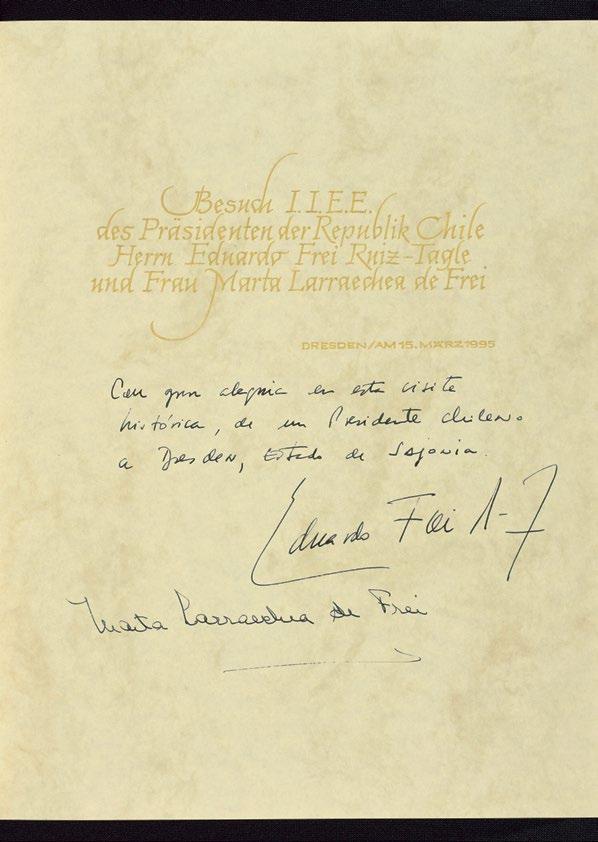 Besuch I.I.E.E.
des Präsidenten der Republik Chile
Herrn Eduardo Frei Ruiz-Tagle
und Frau Marta Larraechea de Frei
DRESDEN/AM 15. MÄRZ 1995
Con gran alegria en esta visita
histórica, de un Presidente chileno
a Dresden, Estado de Sajonia.
Eduardo Frei R-T
Marta Larraechea de Frei